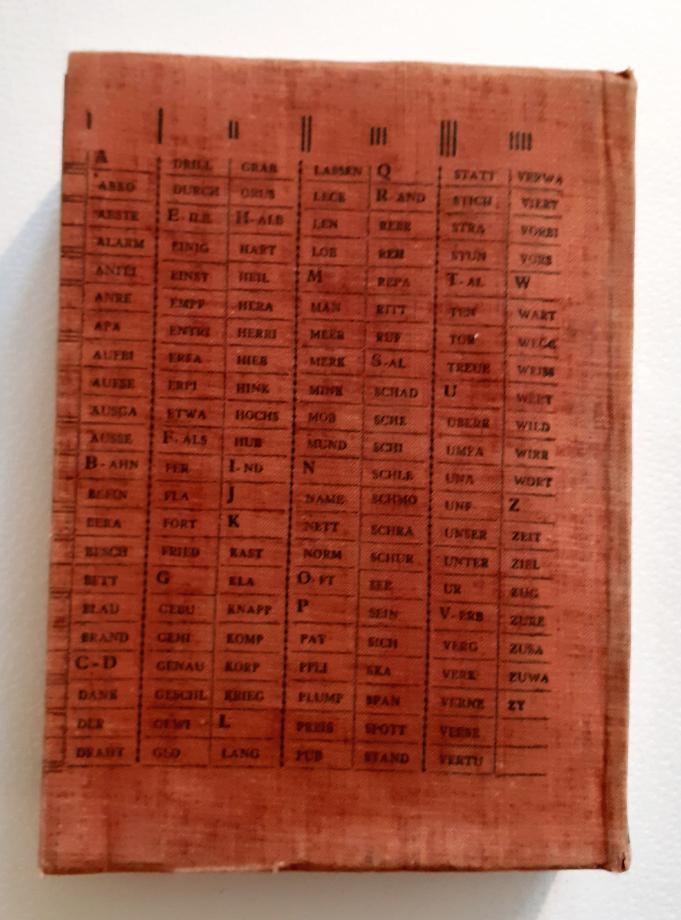 A
ALARM
ANTEI
ANRE
APA
AUFBI
AUFSE
AUSGA
AUSSE
B-AHN
BEFIN
BERA
BESCH
BETT
BLAU
BRAND
C-D
DANK
DER
DRAHT
DRILL
DURCH
EINIG
EINST
EMPF
ENTRI
ERFA
ERPI
ETWA
F-ALS
FER
FLA
FORT
FRIED
G
GEBU
GEHI
GENAU
GESCHL
GEWI
GLO
GRAB
GRUS
H-ALB
HART
HEIL
HERA
HIEB
HINK
HOCHS
HUB
I-ND
J
K
KAST
KLA
KNAPP
KOMP
KORP
KRIEG
L
LANG
LASSEN
LECK
LEN
LOB
M
MAN
MEER
MERK
MINE
MOB
MUND
N
NAME
NETT
NORM
O-FT
P
PAT
PFLI
PLUMP
PREIS
PUB
Q
R-AND
REBE
REH
REPA
RITT
RUF
S-AL
SCHAD
SCHE
SCHI
SCHLE
SCHMO
SCHRA
SCHUR
SEE
SEIN
SICH
SKA
SPAN
SPOTT
STAND
STATT
STICH
STRA
STUN
T-AL
TEN
TOR
TREUE
U
ÜBERR
UMFA
UNA
UNF
UNSER
UNTER
UR
V-ERB
VERG
VERK
VERNE
VERSE
VERTU
VERWA
VIERT
VORBI
VORS
W
WART
WEGG
WEISS
WERT
WILD
WIRR
WORT
Z
ZEIT
ZIEL
ZUG
ZURE
ZUSA
ZUWA
ZY